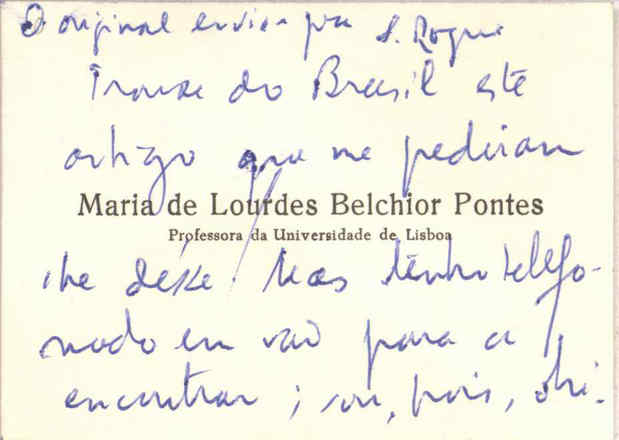 O original enviei pra S. Roque
Trouxe do Brasil este
artigo que me pediram
Maria de Lourdes Belchior Pontes
Professora da Universidade de Lisboa
lhe desse. Mas tenho telefo-
nado em vão para a
encontrar; sou, pois, obri-